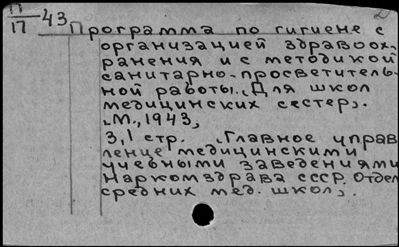 17-43 Программа по гигиене с
организацией здравоох-
ранения и с методикой
санитарно-просветитель-
ной работы. (Для школ
медицинских сестер).
М., 1943,
3,1 стр. (Главное управ
ление медицинскими
учебными заведениями
Наркомздрава СССР. Отдел
средних мед. школ).